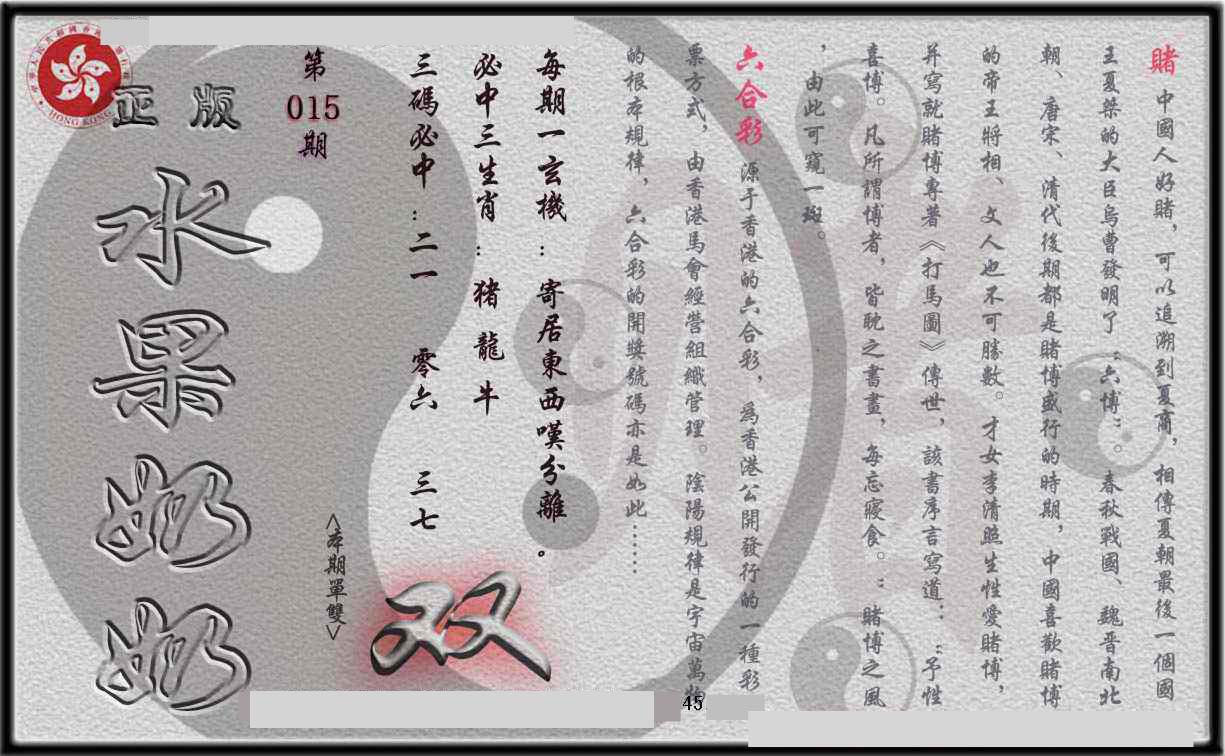 賭 中國人好賭，可以追溯到夏商，相傳夏朝最後一個國
王夏桀的大臣烏曹發明了“六博”。春秋戰國、魏晋南北
朝、唐宋、清代後期都是賭博盛行的時期，中國喜歡賭博
的帝王將相、文人也不可勝數。才女李清照生性愛賭博，
并寫就賭博專著《打馬圖》傳世，該書序言寫道：“予性
喜博。凡所謂博者，皆耽之書畫，每忘寢食。”賭博之風
，由此可窺一斑。
六合彩 源于香港的六合彩，為香港公開發行的一種彩
票方式，由香港馬會經營組織管理。陰陽規律是宇宙萬物
的根本規律，六合彩的開獎號碼亦是如此……
每期一玄機：寄居東西嘆分離。
必中三生肖：猪 龍 牛
三碼必中：二一 零六 三七
<本期單雙>
双
第
015
期
正版
水果奶奶
HONG KONG
45